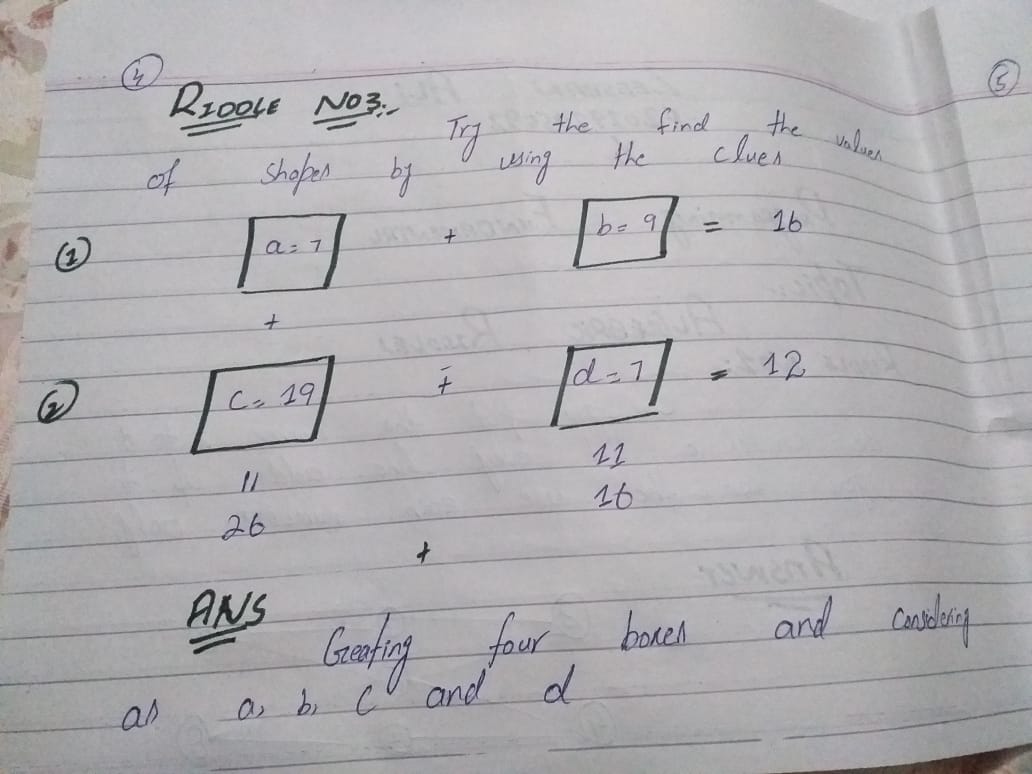 4
5
RIDDLE NO3:-
Try the find the values
of shapes by using the clues
(1) a=7 + b=9 = 16
+
(2) c=19 ∓ d=7 = 12
11 11
26 16
+
ANS
Creating four boxes and Considering
as a, b, c and d